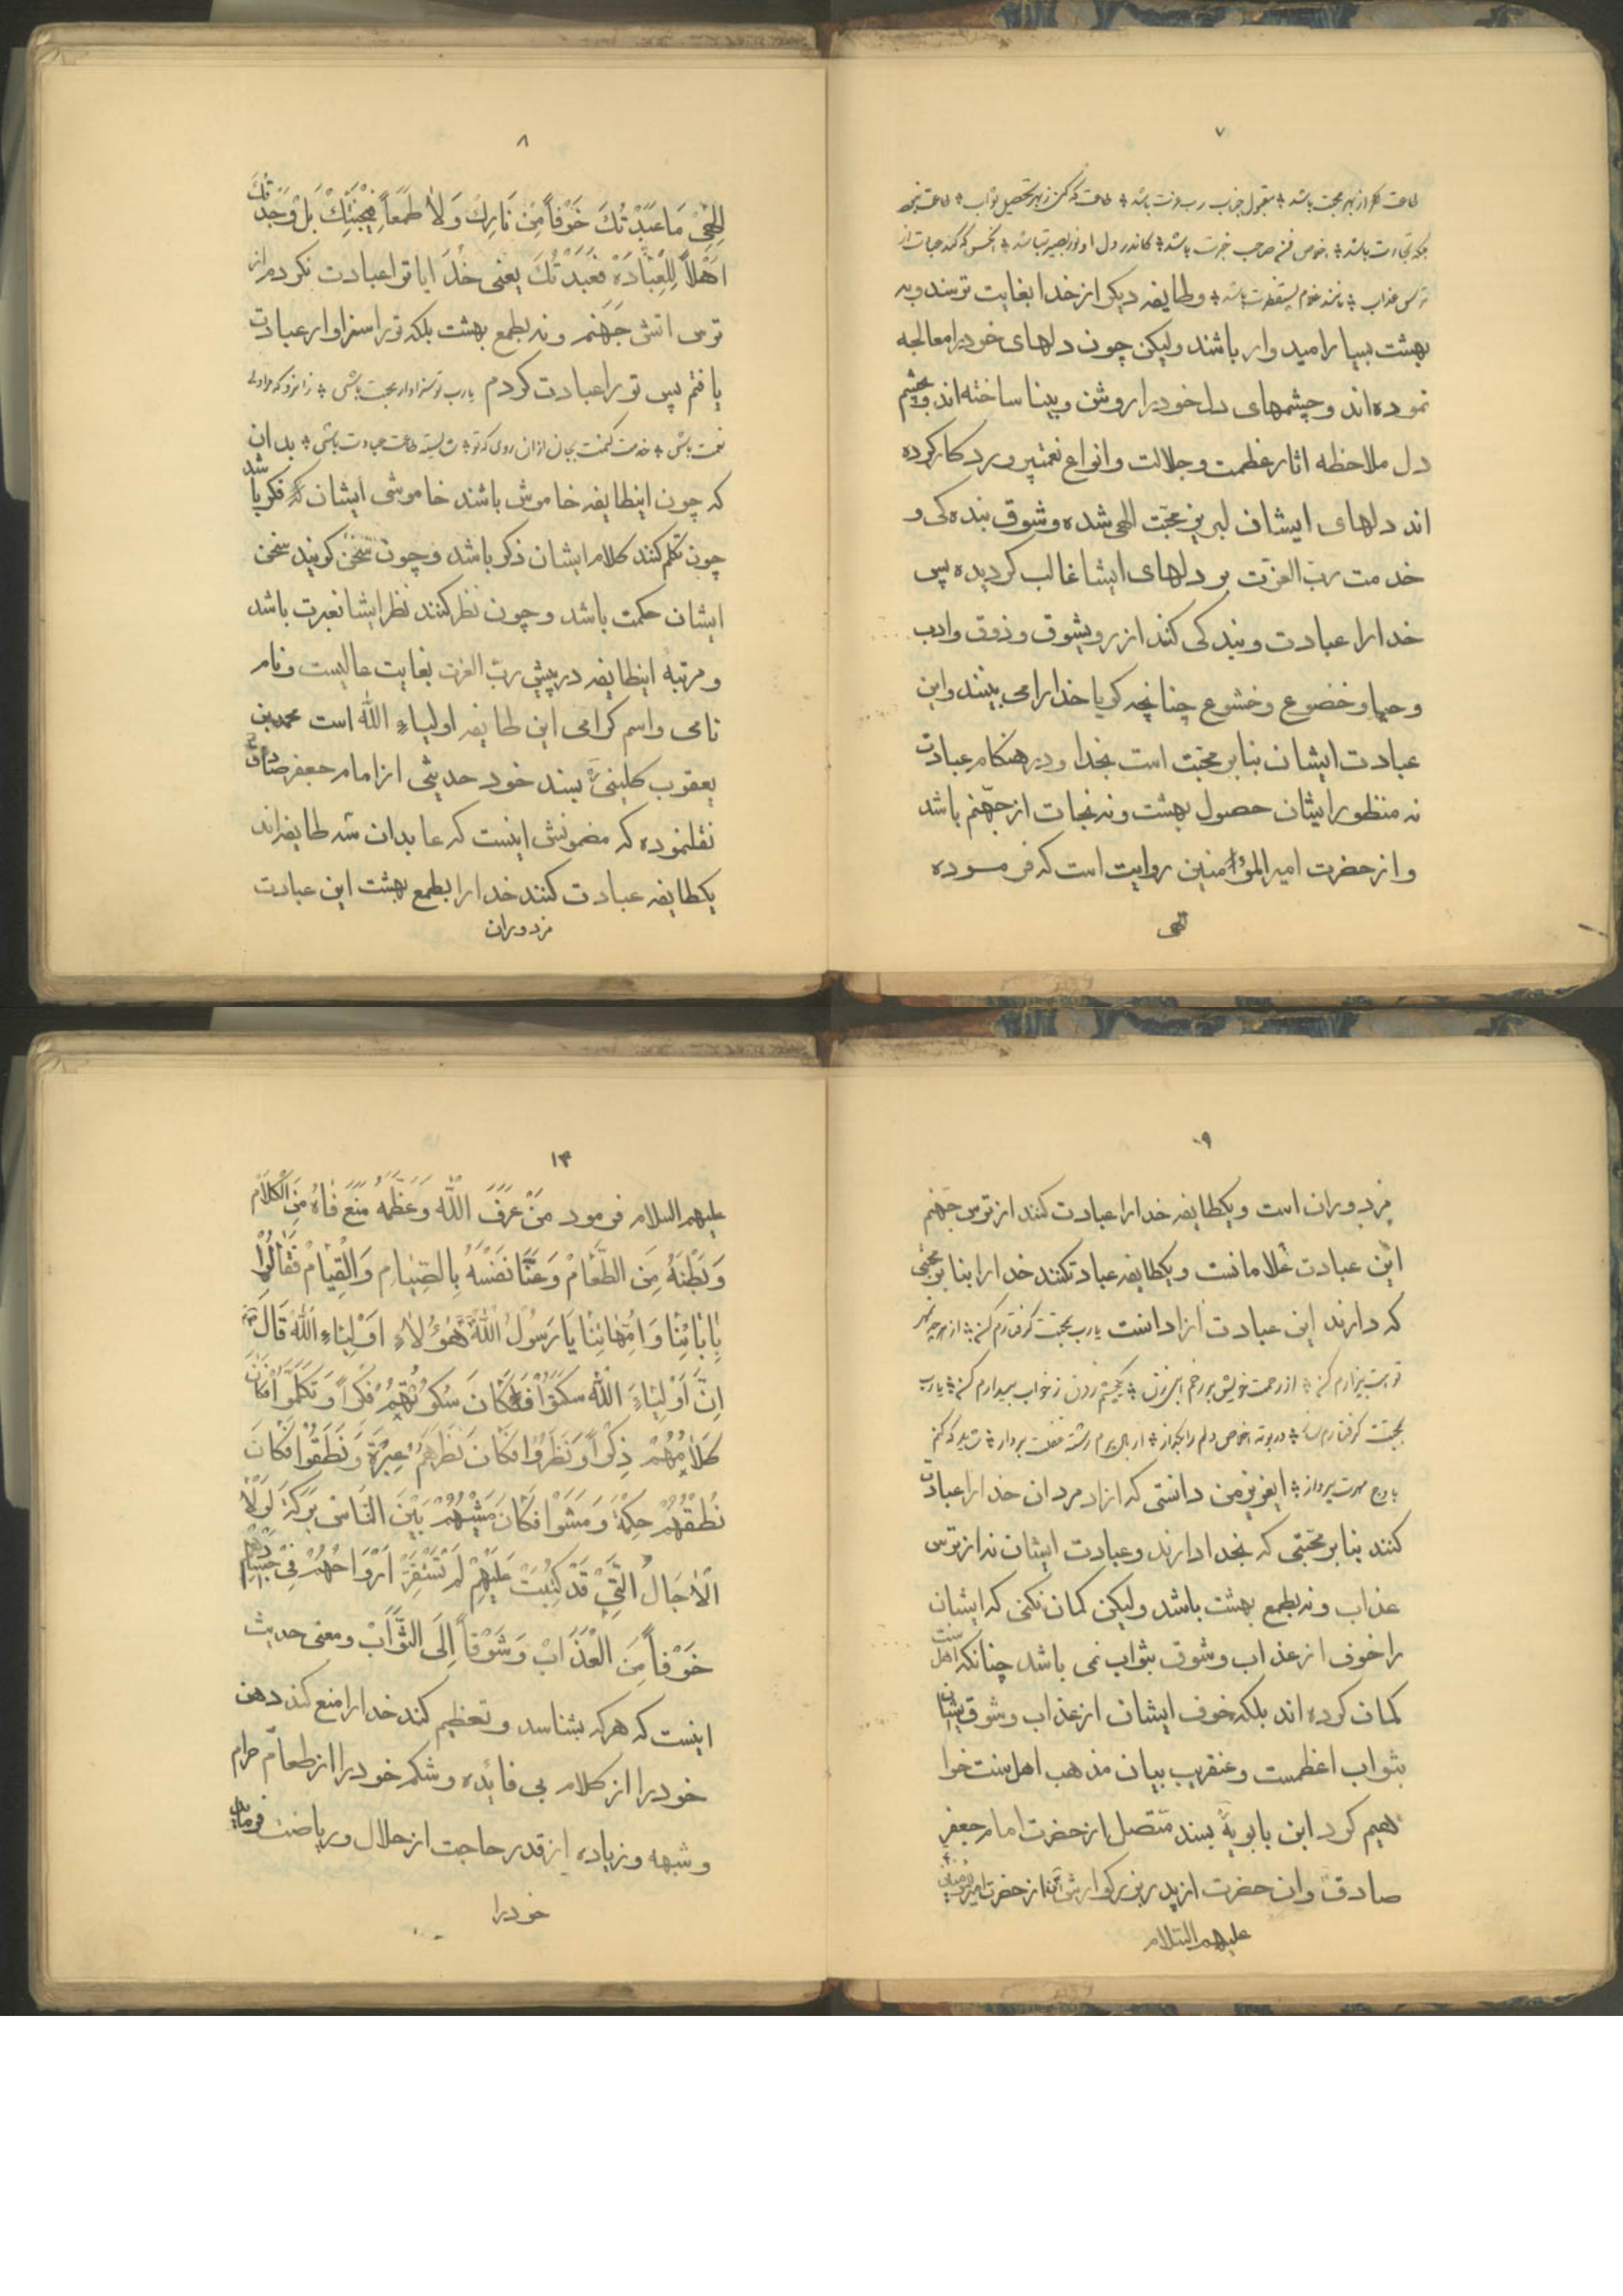 ۷
طاعت گر از بهر محبت باشد ؞ مقبول جناب رب عزت باشد ؞ طاعت که کنی ز بهر تحصیل ثواب ؞ طاعت نبود
بلکه تجارت باشد ؞ کاندر دل او نور بصیرت باشد ؞
ترس عذاب ؞ مانند غلام باشد ؞ وطایفه دیکر از خدا بغایت ترسند وبه
بهشت بسیار امیدوار باشند ولیکن چون دلهای خود را معالجه
نموده اند وچشمهای دل خود را روشن وبینا ساخته اند وبچشم
دل ملاحظه اثار عظمت وجلالت وانواع نعمت پروردکار کرده
اند دلهای ایشان لبریز محبت الهی شده وشوق بنده کی و
خدمت رب العزت بر دلهای ایشا غالب کردیده پس
خدا را عبادت وبندکی کنند از رویشوق وذوق وادب
وحیا وخضوع وخشوع چنانچه کویا خدا را می بینند واین
عبادت ایشان بنابر محبت است بخدا ودر هنکام عبادت
نه منظور ایشان حصول بهشت ونه نجات از جهنم باشد
واز حضرت امیر المؤمنین روایت است که فرموده
الهی
۸
اِلهِی مَا عَبَدْتُكَ خَوْفاً مِنْ نَارِكَ وَلاٰ طَمَعاً فِی جَنَّتِكَ بَلْ وَجَدْتُكَ
اَهْلاً لِلْعِبَادَةِ فَعَبَدْتُكَ یعنی خدایا تو را عبادت نکردم از
ترس اتش جهنم ونه بطمع بهشت بلکه تو را سزاوار عبادت
یافتم پس تو را عبادت کردم یارب تو سزاوار محبت باشی ؞
نعمت باشی ؞ طاعت وعبادت باشی ؞ بدان
که چون اینطایفه خاموش باشند خاموشی ایشان فکر باشد
چون تکلم کنند کلام ایشان ذکر باشد وچون سخن کویند سخن
ایشان حکمت باشد وچون نظر کنند نظر ایشا نعبرت باشد
ومرتبۀ اینطایفه در پیش رب العزت بغایت عالیست ونام
نامی واسم کرامی این طایفه اولیاء الله است محمد بن
یعقوب کلینی بسند خود حدیثی از امام جعفر صادق ع
نقلنموده که مضمونش اینست که عابدان سه طایفه اند
یکطایفه عبادت کنند خدا را بطمع بهشت این عبادت
مزدوران
۹
مزدوران است ویکطایفه خدا را عبادت کنند از ترس جهنم
این عبادت غلامانست ویکطایفه عبادتکنند خدا را بنا بر محبتی
که دارند این عبادت ازاد انست یارب بمحبت کرفتارم کن ؞ از هر چه بغیر
تو است بیزارم کن ؞ از رحمت خویش بر رخم ابی زن ؞ یکچشم زدن ز خواب بیدارم کن ؞ یارب
بمحبت کرفتارم ساز ؞ در بوته اخلاص دلم را بکداز ؞ از بال وپرم رشته غفلت بردار ؞ شاید که کنم
باوج پرواز ؞ ایعزیز من دانستی که ازاد مردان خدا را عبادت
کنند بنا بر محبتی که بخدا دارند وعبادت ایشان نه از ترس
عذاب ونه بطمع بهشت باشد ولیکن کمان نکنی که ایشان
را خوف از عذاب وشوق بثواب نمی باشد چنانکه اهل سنت
کمان کرده اند بلکه خوف ایشان از عذاب وشوق ایشان
بثواب اعظمست وعنقریب بیان مذهب اهل سنت خوا
هیم کرد ابن بابویه بسند متصل از حضرت امام جعفر
صادق وان حضرت از پدر بزرکوارش از حضرت امیر المؤمنین
علیهم السلام
۱۳
علیهم السلام فرمود مَنْ عَرَفَ اللّٰهَ وَعَظَّمَهُ مَنَعَ فَاهُ مِنَ الْکَلاٰمِ
وَبَطْنَهُ مِنَ الطَّعَامِ وَعَنَّا نَفْسَهُ بِالصِّیَامِ وَالْقِیَامِ فَقَالُوا
بِاٰبَائِنَا وَاُمَّهَاتِنَا یَا رَسُولَ اللّٰهِ هٰؤُلاٰءِ اَوْلِیَاءِ اللّٰهِ قَالَ
اِنَّ اَوْلِیَاءَ اللّٰهِ سَکَتُوا فَکَانَ سُکُوتُهُمْ فِکْراً وَتَکَلَّمُوا فَکَانَ
کَلاٰمُهُمْ ذِکْراً وَنَظَرُوا فَکَانَ نَظَرُهُمْ عِبْرَةً وَنَطَقُوا فَکَانَ
نُطْقُهُمْ حِکْمَةً وَمَشَوْا فَکَانَ مَشْیُهُمْ بَیْنَ النَّاسِ بَرَکَةً لَوْلاٰ
الْاٰجَالُ الَّتِی قَدْ کُتِبَتْ عَلَیْهِمْ لَمْ تَسْتَقِرَّ اَرْوَاحُهُمْ فِی اَجْسَادِهِمْ
خَوْفاً مِنَ الْعَذَابِ وَشَوْقاً اِلَی الثَّوَابِ ومعنی حدیث
اینست که هر که بشناسد وتعظیم کند خدا را منع کند دهن
خود را از کلام بی فائده وشکم خود را از طعام حرام
وشبهه وزیاده از قدر حاجت از حلال وریاضت فرماید
خود را